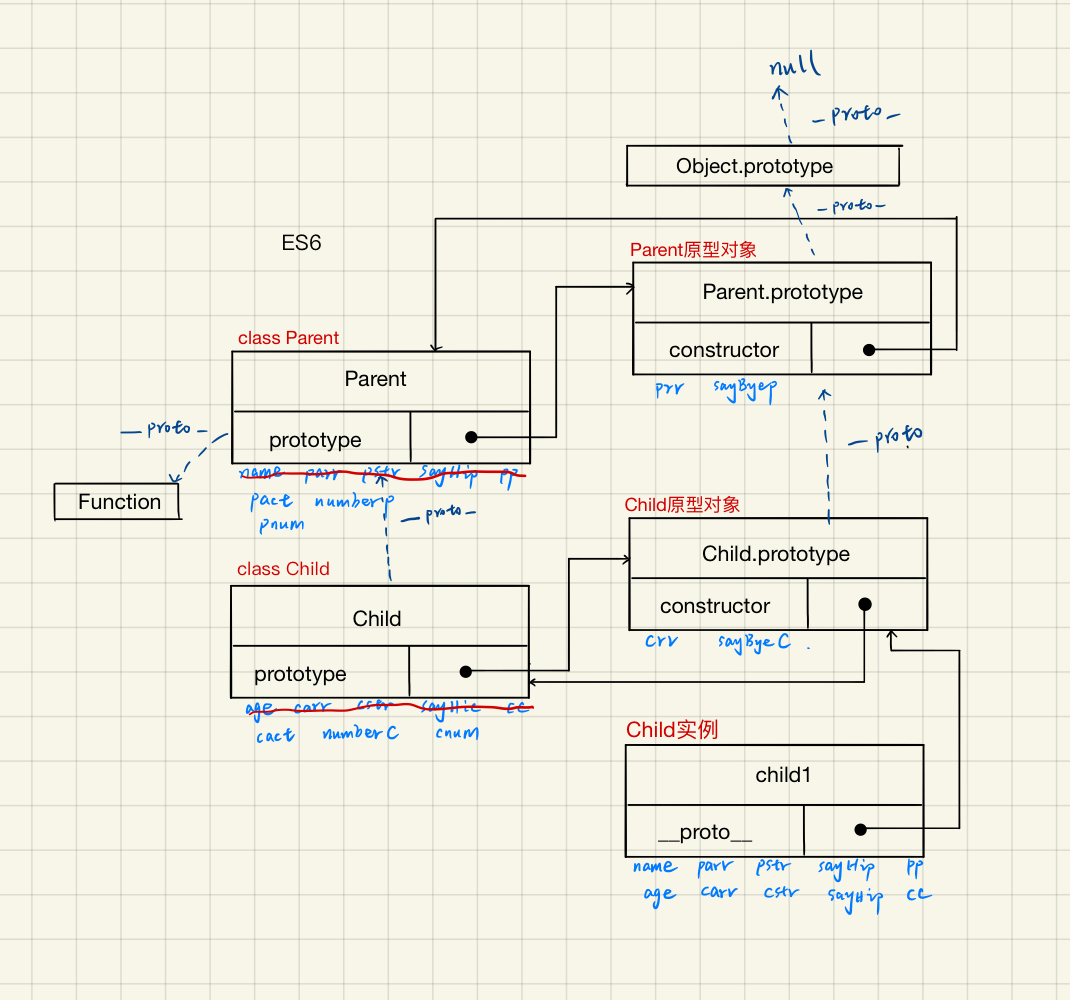 null
— proto —
Object.prototype
— proto —
ES6
Parent原型对象
Parent.prototype
constructor
prr sayByep
class Parent
Parent
prototype
name parr pstr sayHip pp
pact numberp
pnum
— proto —
Function
— proto —
— proto
Child原型对象
Child.prototype
constructor
crr sayByeC .
class Child
Child
prototype
age carr cstr sayHic cc
cact numberC cnum
Child实例
child1
__proto__
name parr pstr sayHip pp
age carr cstr sayHip cc